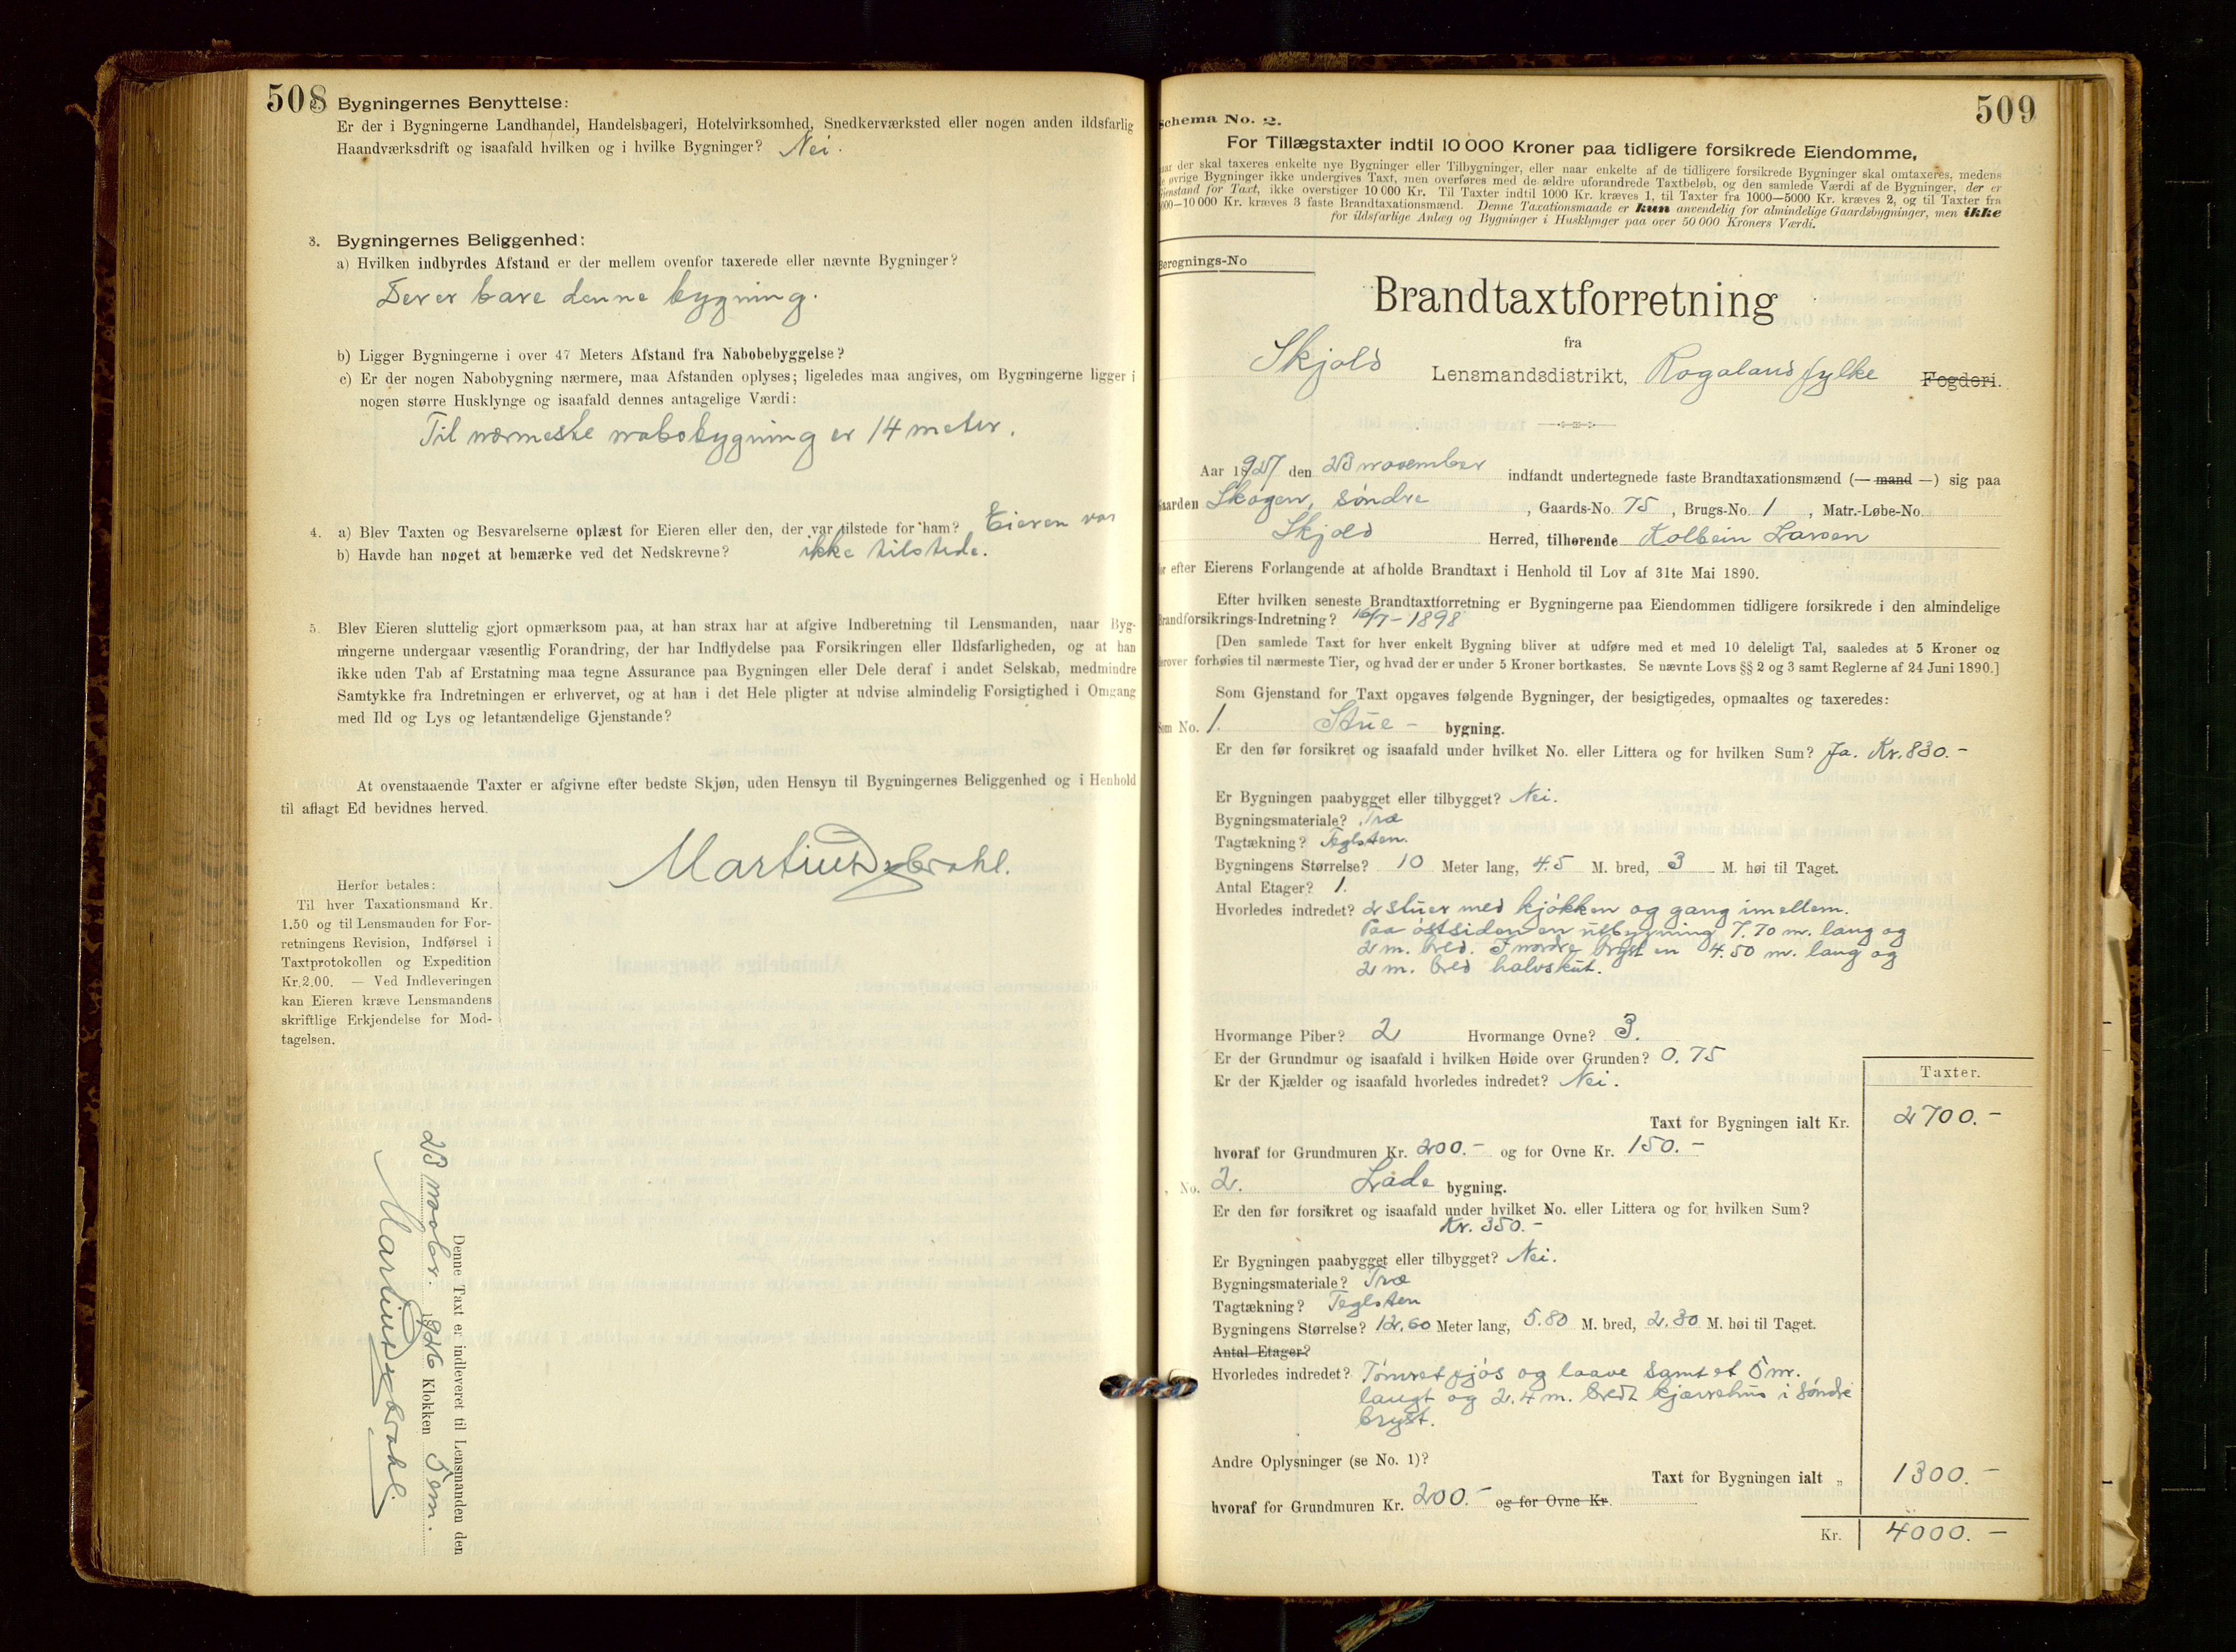 508
Bygningernes Benyttelse:
Er der i Bygningerne Landhandel, Handelsbageri, Hotelvirksomhed, Snedkerværksted eller nogen anden ildsfarlig
Haandværksdrift og isaafald hvilken og i hvilke Bygninger? Nei.
3. Bygningernes Beliggenhed:
a) Hvilken indbyrdes Afstand er der mellem ovenfor taxerede eller nævnte Bygninger?
Der er bare denne bygning.
b) Ligger Bygningerne i over 47 Meters Afstand fra Nabobebyggelse?
c) Er der nogen Nabobygning nærmere, maa Afstanden oplyses; ligeledes maa angives, om Bygningerne ligger i
nogen større Husklynge og isaafald dennes antagelige Værdi:
Til nærmeste nabobygning er 14 meter.
4. a) Blev Taxten og Besvarelserne oplæst for Eieren eller den, der var tilstede for ham? Eieren var
b) Havde han noget at bemærke ved det Nedskrevne? ikke tilstede.
5. Blev Eieren sluttelig gjort opmærksom paa, at han strax har at afgive Indberetning til Lensmanden, naar Byg-
ningerne undergaar væsentlig Forandring, der har Indflydelse paa Forsikringen eller Ildsfarligheden, og at han
ikke uden Tab af Erstatning maa tegne Assurance paa Bygningen eller Dele deraf i andet Selskab, medmindre
Samtykke fra Indretningen er erhvervet, og at han i det Hele pligter at udvise almindelig Forsigtighed i Omgang
med Ild og Lys og letantændelige Gjenstande?
At ovenstaaende Taxter er afgivne efter bedste Skjøn, uden Hensyn til Bygningernes Beliggenhed og i Henhold
til aflagt Ed bevidnes herved.
Herfor betales:
Til hver Taxationsmand Kr.
1.50 og til Lensmanden for For-
retningens Revision, Indførsel i
Taxtprotokollen og Expedition
Kr.2.00. — Ved Indleveringen
kan Eieren kræve Lensmandens
skriftlige Erkjendelse for Mod-
tagelsen.
Denne Taxt er indleveret til Lensmanden den
23 novbr. 1926 Klokken 5 em.
509
Schema No. 2.
For Tillægstaxter indtil 10 000 Kroner paa tidligere forsikrede Eiendomme,
naar der skal taxeres enkelte nye Bygninger eller Tilbygninger, eller naar enkelte af de tidligere forsikrede Bygninger skal omtaxeres, medens
de øvrige Bygninger ikke undergives Taxt, men overføres med de ældre uforandrede Taxtbeløb, og den samlede Værdi af de Bygninger, der er
Gjenstand for Taxt, ikke overstiger 10 000 Kr. Til Taxter indtil 1000 Kr. kræves 1, til Taxter fra 1000—5000 Kr. kræves 2, og til Taxter fra
000—10 000 Kr. kræves 3 faste Brandtaxationsmænd. Denne Taxationsmaade er kun anvendelig for almindelige Gaardsbygninger, men ikke
for ildsfarlige Anlæg og Bygninger i Husklynger paa over 50 000 Kroners Værdi.
Beregnings-No
Brandtaxtforretning
fra
Skjold Lensmandsdistrikt, Rogaland fylke Fogderi.
Aar 1927 den 23 november indfandt undertegnede faste Brandtaxationsmænd (— mand —) sig paa
Gaarden Skogen, søndre, Gaards-No. 75, Brugs-No. 1, Matr.-Løbe-No.
Skjold Herred, tilhørende Kolbein Larsen
for efter Eierens Forlangende at afholde Brandtaxt i Henhold til Lov af 31te Mai 1890.
Efter hvilken seneste Brandtaxtforretning er Bygningerne paa Eiendommen tidligere forsikrede i den almindelige
Brandforsikrings-Indretning? 16/7 - 1898
[Den samlede Taxt for hver enkelt Bygning bliver at udføre med et med 10 deleligt Tal, saaledes at 5 Kroner og
derover forhøies til nærmeste Tier, og hvad der er under 5 Kroner bortkastes. Se nævnte Lovs §§ 2 og 3 samt Reglerne af 24 Juni 1890.]
Som Gjenstand for Taxt opgaves følgende Bygninger, der besigtigedes, opmaaltes og taxeredes:
Som No. 1. Stue - bygning.
Er den før forsikret og isaafald under hvilket No. eller Littera og for hvilken Sum? Ja. Kr. 830.-
Er Bygningen paabygget eller tilbygget? Nei.
Bygningsmateriale? Træ
Tagtækning? Teglsten.
Bygningens Størrelse? 10 Meter lang, 4.5 M. bred, 3 M. høi til Taget.
Antal Etager? 1.
Hvorledes indredet? 2 stuer med kjøkken og gang imellem.
Paa østsiden en utbygning 7.70 m. lang og
2 m. bred. I nordre bryst en 4.50 m. lang og
2 m. bred halvskut.
Hvormange Piber? 2 Hvormange Ovne? 3.
Er der Grundmur og isaafald i hvilken Høide over Grunden? 0.75
Er der Kjælder og isaafald hvorledes indredet? Nei.
Taxter.
Taxt for Bygningen ialt Kr. 2700.-
hvoraf for Grundmuren Kr. 200.- og for Ovne Kr. 150.-
" No. 2. Lade bygning.
Er den før forsikret og isaafald under hvilket No. eller Littera og for hvilken Sum?
Kr. 350.-
Er Bygningen paabygget eller tilbygget? Nei.
Bygningsmateriale? Træ
Tagtækning? Teglsten
Bygningens Størrelse? 12.60 Meter lang, 5.80 M. bred, 2.30 M. høi til Taget.
Antal Etager?
Hvorledes indredet? Tømret fjøs og laave samt et 5 m.
langt og 2.4 m. bredt kjærrehus i søndre
bryst.
Andre Oplysninger (se No. 1)?
Taxt for Bygningen ialt „ 1300.-
hvoraf for Grundmuren Kr. 200.- og for Ovne Kr.
Kr. 4000.-